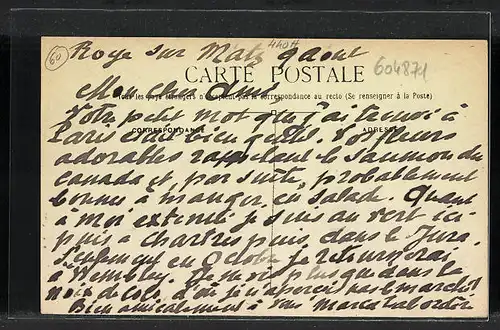 60 Roye sur Matz 9 aout 440H
CARTE POSTALE 604871
Mon cher Ami,
Tous les pays étrangers n'acceptent pas la correspondance au recto (Se renseigner à la Poste)
Votre petit mot que j'ai trouvé à
CORRESPONDANCE ADRESSE
Paris était bien gentil. Vos fleurs
adorables rappelant le saumon du
Canada et, par suite, probablement
bonnes à manger en salade. Quant
à moi exténué je suis au vert ici
puis à Chartres puis, dans le Jura.
en Octobre je retournerai
à Wembley. Je ne vis plus que dans la
noix de coco d'où je n'aperçois pas le marché!
Bien amicalement à vous